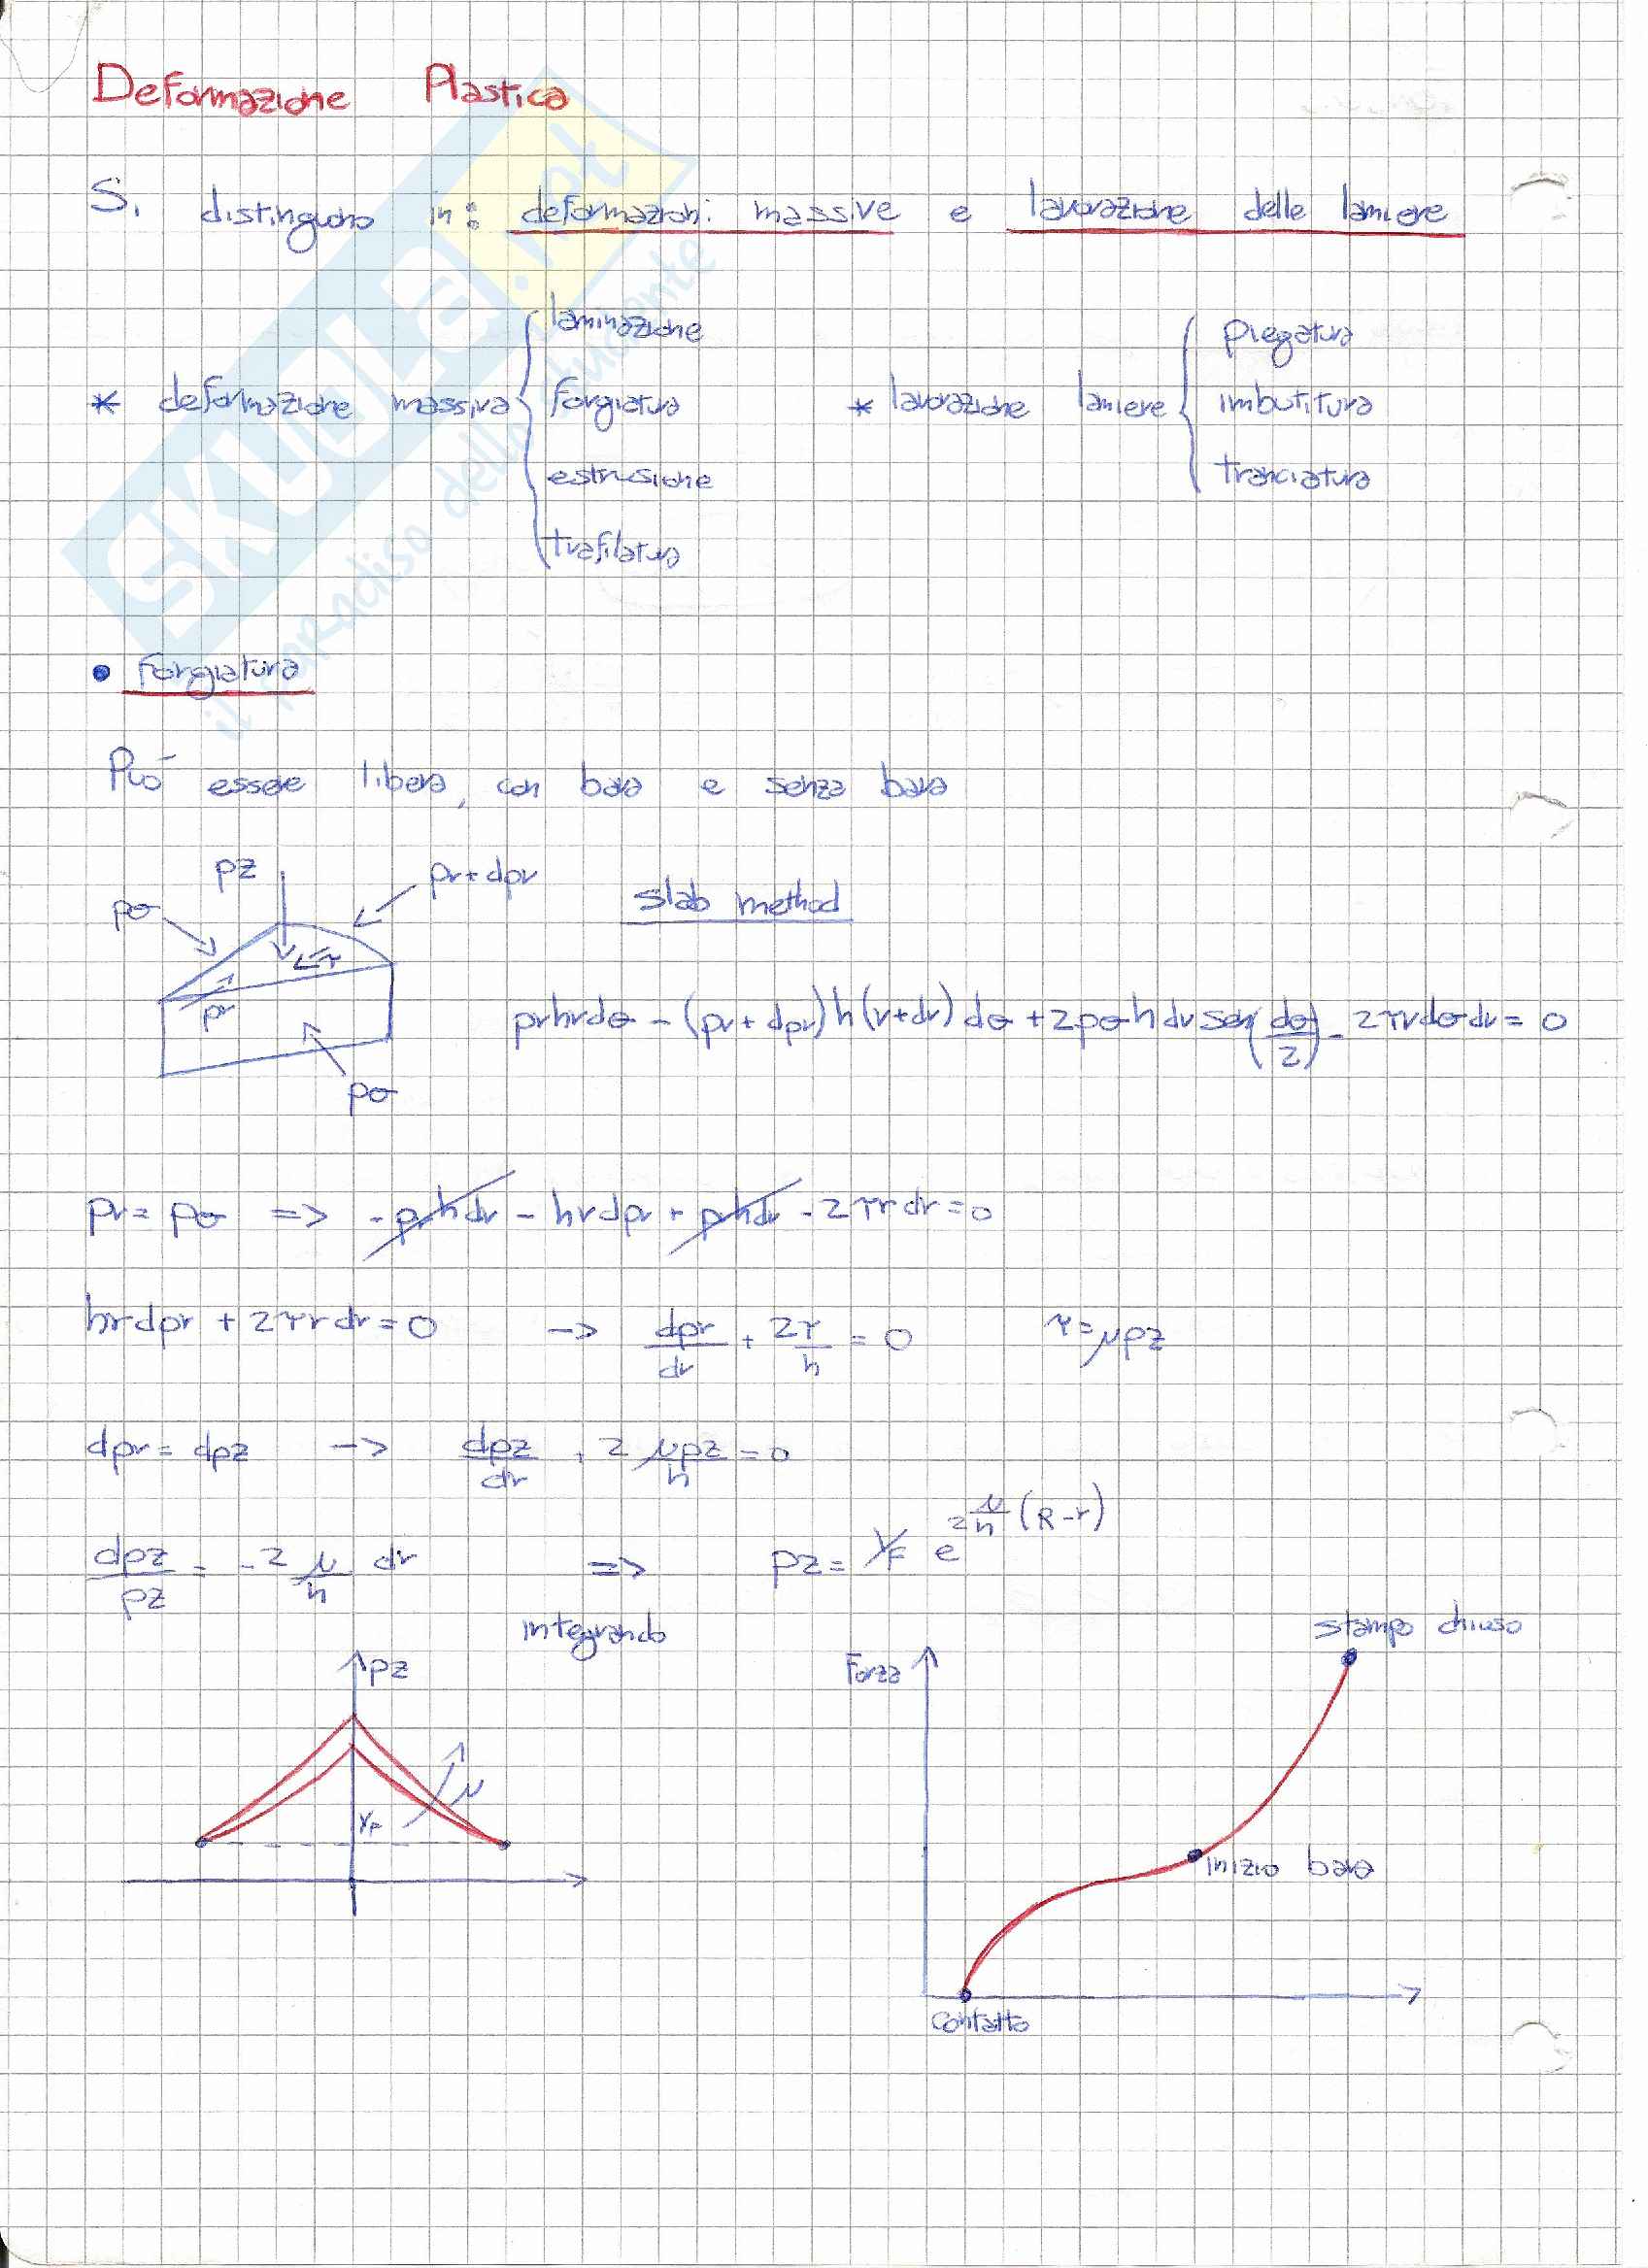 Deformazione Plastica
Si distinguono in: deformazioni massive e lavorazione delle lamiere
* deformazione massiva { laminazione
forgiatura
estrusione
trafilatura
* lavorazione lamiere { piegatura
imbutitura
tranciatura
SKUOLA.net
il paradiso dello studente
• Forgiatura
Può essere libera, con bava e senza bava
pz
pr+dpr
pθ
τ
pr
pθ
slab method
prhrdθ - (pr + dpr)h(r+dr)dθ + 2pθhdr sen(dθ/2) - 2τrdθdr = 0
pr = pθ => -prhdr - hrdpr + prhdr - 2τrdr = 0
hrdpr + 2τrdr = 0 -> dpr/dr + 2τ/h = 0 τ = μpz
dpr = dpz -> dpz/dr + 2 μpz/h = 0
dpz/pz = -2 μ/h dr => pz = YF e^(2 μ/h (R-r))
integrando
pz
YF
μ
Forza
stampo chiuso
inizio bava
contatto